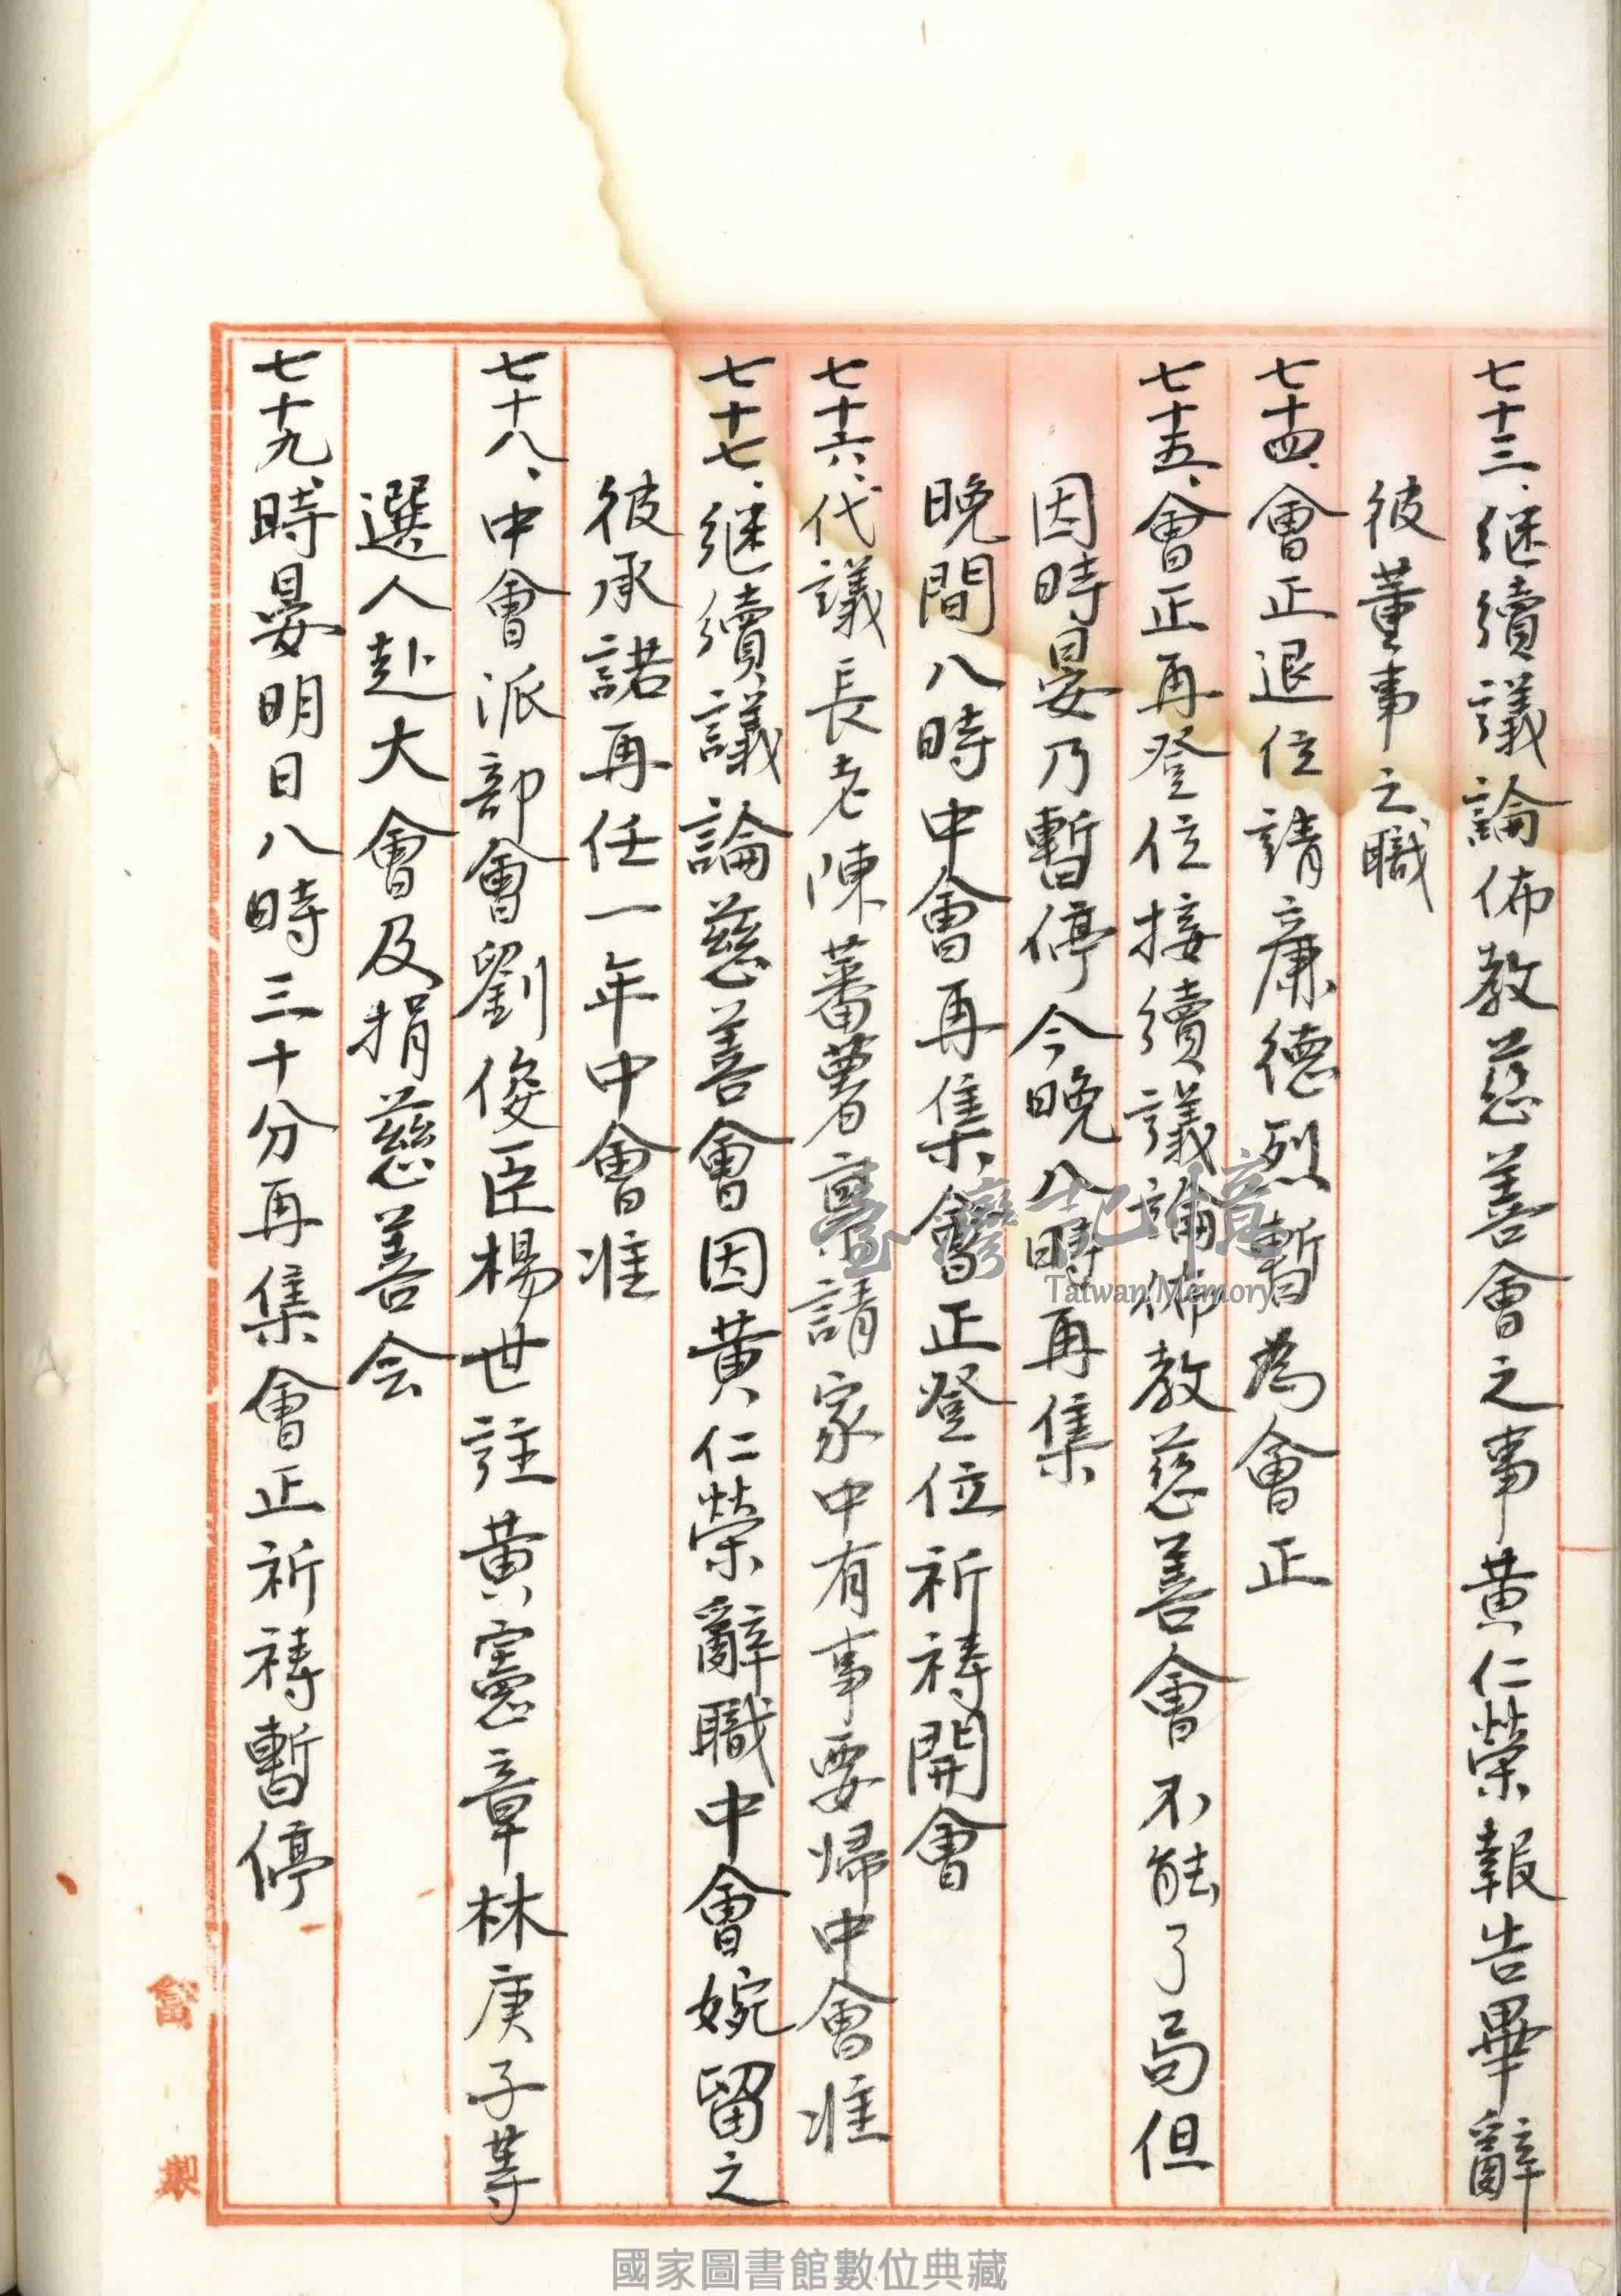 七十三、継續議論佈教慈善會之事黄仁榮報告畢辭
彼董事之職
七十四、會正退位請康德烈暫為會正
七十五、會正再登位接續議論佈教慈善會不能了局但
因時晏乃暫停今晚八時再集
晚間八時中會再集會正登位祈禱開會
七十六、代議長老陳蕃薯稟請家中有事要歸中會准
七十七、継續議論慈善會因黄仁榮辭職中會婉留之
彼承諾再任一年中會准
七十八、中會派部會劉俊臣楊世註黄憲章林庚子等
選人赴大會及捐慈善会
七十九、時晏明日八時三十分再集會正祈禱暫停
製
臺灣記憶
Taiwan Memory
國家圖書館數位典藏